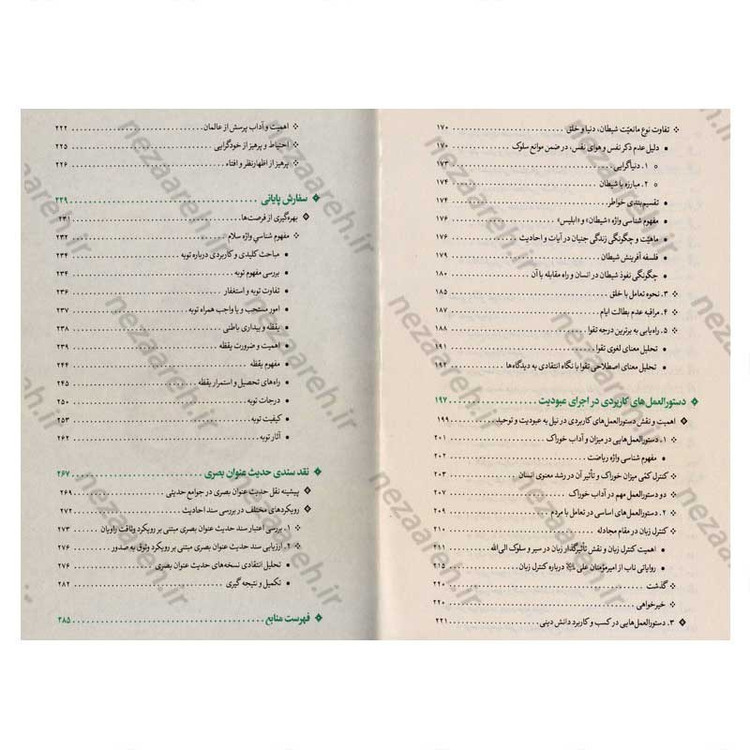 تفاوت نوع مانعیّت شیطان، دنیا و خلق ۱۷۰
دلیل عدم ذکر نفس و هوای نفس، در ضمن موانع سلوک ۱۷۰
۱. دنیاگرایی ۱۷۳
۲. مبارزه با شیطان ۱۷۴
تقسیم‌بندی خواطر ۱۷۴
مفهوم شناسی واژه «شیطان» و «ابلیس» ۱۷۶
ماهیّت و چگونگی زندگی جنیان در آیات و احادیث ۱۷۶
فلسفه آفرینش شیطان ۱۷۹
چگونگی نفوذ شیطان در انسان و راه مقابله با آن ۱۸۰
۳. نحوه تعامل با خلق ۱۸۵
۴. مراقبه عدم بطالت ایام ۱۸۷
۵. راه‌یابی به برترین درجه تقوا ۱۸۸
تحلیل معنای لغوی تقوا ۱۹۱
تحلیل معنای اصطلاحی تقوا با نگاه انتقادی به دیدگاه‌ها ۱۹۲
دستورالعمل‌های کاربردی در اجرای عبودیت ۱۹۷
اهمیت و نقش دستورالعمل‌های کاربردی در نیل به عبودیت و توحید ۱۹۹
۱. دستورالعمل‌هایی در میزان و آداب خوراک ۲۰۱
مفهوم شناسی واژه ریاضت
کنترل کمّی میزان خوراک و تأثیر آن در رشد معنوی انسان ۲۰۳
دو دستورالعمل مهم در آداب خوراک ۲۰۷
۲. دستورالعمل‌های اساسی در تعامل با مردم ۲۰۹
کنترل زبان در مقام مجادله ۲۱۰
اهمیت کنترل زبان و نقش تأثیرگذار زبان در سیر و سلوک الی الله ۲۱۱
روایاتی ناب از امیرمؤمنان علی درباره کنترل زبان ۲۱۵
گذشت ۲۲۰
خیرخواهی ۲۲۰
۳. دستورالعمل‌هایی در کسب و کاربرد دانش دینی ۲۲۱
اهمیت و آداب پرسش از عالمان ۲۲۲
احتیاط و پرهیز از خودگرایی ۲۲۵
پرهیز از اظهارنظر و افتاء ۲۲۶
سفارش پایانی ۲۲۹
بهره‌گیری از فرصت‌ها ۲۳۱
مفهوم شناسی واژه سلام ۲۳۲
مباحث کلیدی و کاربردی درباره توبه ۲۳۴
بررسی مفهوم توبه ۲۳۴
تفاوت توبه و استغفار ۲۳۶
امور مستحب و یا واجب همراه توبه ۲۳۷
یقظه و بیداری باطنی ۲۳۸
اهمیت و ضرورت یقظه ۲۳۹
مفهوم یقظه ۲۴۴
راه‌های تحصیل و استمرار یقظه ۲۴۵
درجات توبه ۲۵۰
کیفیت توبه ۲۵۳
آثار توبه ۲۶۲
نقد سندی حدیث عنوان بصری ۲۶۷
پیشینه نقل حدیث عنوان بصری در جوامع حدیثی ۲۶۹
رویکردهای مختلف در بررسی سند احادیث ۲۷۱
۱. بررسی اعتبار سند حدیث عنوان بصری مبتنی بر رویکرد وثاقت راویان ۲۷۳
۲. ارزیابی سند حدیث عنوان بصری مبتنی بر رویکرد وثوق به صدور ۲۷۶
تحلیل انتقادی نسخه‌های حدیث عنوان بصری ۲۷۶
تکمیل و نتیجه گیری ۲۸۲
فهرست منابع ۲۸۵
nezaareh.ir